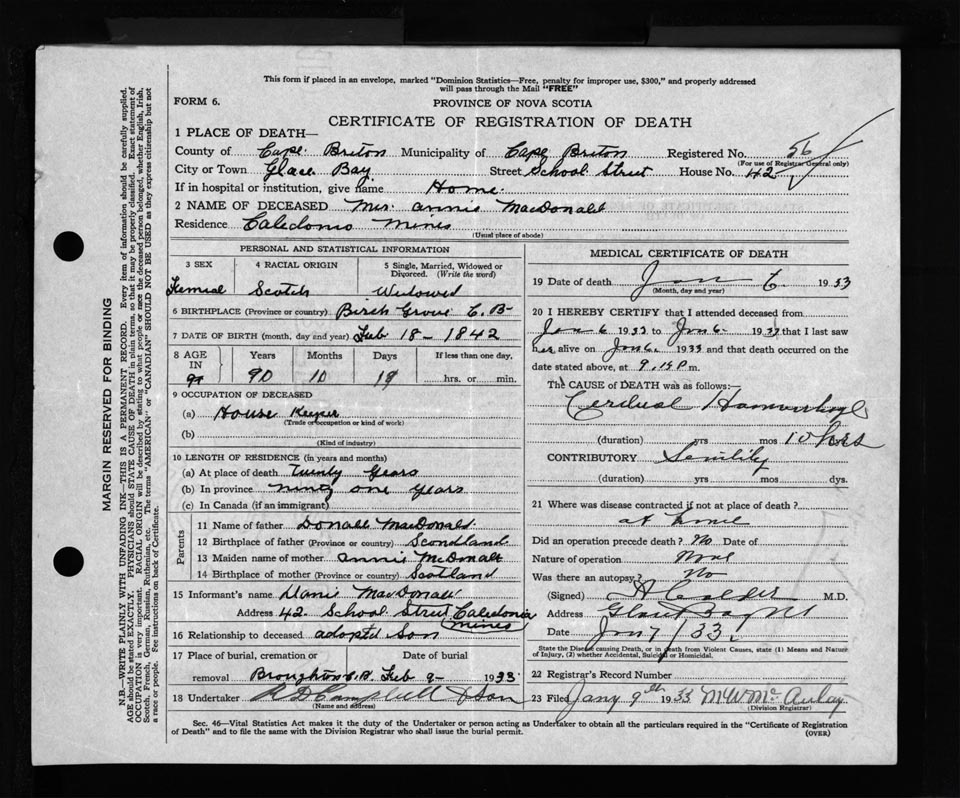 This form if placed in an envelope, marked "Dominion Statistics—Free, penalty for improper use, $300," and properly addressed
will pass through the Mail "FREE"
FORM 6.
PROVINCE OF NOVA SCOTIA
CERTIFICATE OF REGISTRATION OF DEATH
1 PLACE OF DEATH—
County of Cape Briton Municipality of Cape Briton Registered No. 56
(For use of Registrar General only)
City or Town Glace Bay Street School Street House No. 42
If in hospital or institution, give name Home
2 NAME OF DECEASED Mrs. Annie MacDonald
Residence Caledonia Mines
(Usual place of abode)
PERSONAL AND STATISTICAL INFORMATION
3 SEX 4 RACIAL ORIGIN 5 Single, Married, Widowed or Divorced. (Write the word)
Female Scotch Widowed
6 BIRTHPLACE (Province or country) Birch Grove C.B.
7 DATE OF BIRTH (month, day and year) Feb 18-1842
8 AGE IN Years Months Days If less than one day,
90 10 19 hrs. or min.
9 OCCUPATION OF DECEASED
(a) House Keeper
(Trade or occupation or kind of work)
(b)
(Kind of industry)
10 LENGTH OF RESIDENCE (in years and months)
(a) At place of death twenty Years
(b) In province ninty one Years
(c) In Canada (if an immigrant)
Parents
11 Name of father Donald MacDonald
12 Birthplace of father (Province or country) Scondland
13 Maiden name of mother Annie McDonalt
14 Birthplace of mother (Province or country) Scotland
15 Informant's name MacDonald
Address 42 School Street Caledonia Mines
16 Relationship to deceased adopted Son
17 Place of burial, cremation or removal Date of burial
Broughton C.B. Feb 9- 1933
18 Undertaker R D Campbell & Son
(Name and address)
MEDICAL CERTIFICATE OF DEATH
19 Date of death Jan 6 1933
(Month, day and year)
20 I HEREBY CERTIFY that I attended deceased from
Jan 6 1933 to Jan 6 1933 that I last saw
her alive on Jan 6 1933 and that death occurred on the
date stated above, at 9.15 P.m.
The CAUSE of DEATH was as follows:
Hammorhage
(duration) yrs mos 10 hrs
CONTRIBUTORY Senility
(duration) yrs. mos. dys.
21 Where was disease contracted if not at place of death?
at home
Did an operation precede death? No Date of
Nature of operation
Was there an autopsy? No
(Signed) A Calder M.D.
Address Glace Bay NS
Date Jan 7/33.
State the Disease causing Death, or in death from Violent Causes, state (1) Means and Nature
of Injury, (2) whether Accidental, Suicidal or Homicidal.
22 Registrar's Record Number
23 Filed Jany 9th 1933 M W McAulay
(Division Registrar)
Sec. 46—Vital Statistics Act makes it the duty of the Undertaker or person acting as Undertaker to obtain all the particulars required in the "Certificate of Registration
of Death" and to file the same with the Division Registrar who shall issue the burial permit.
(OVER)
MARGIN RESERVED FOR BINDING
N.B.—WRITE PLAINLY WITH UNFADING INK—THIS IS A PERMANENT RECORD. Every item of information should be carefully supplied.
AGE should be stated EXACTLY. PHYSICIANS should STATE CAUSE OF DEATH in plain terms, so that it may be properly classified. Exact statement of
OCCUPATION is very important. RACIAL ORIGIN will be described by stating to what people or race the deceased person belonged, whether English, Irish,
Scotch, French, German, Russian, Ruthenian, etc. The terms "AMERICAN" or "CANADIAN" SHOULD NOT BE USED as they express citizenship but not
a race or people. Fee instructions on back of Certificate.